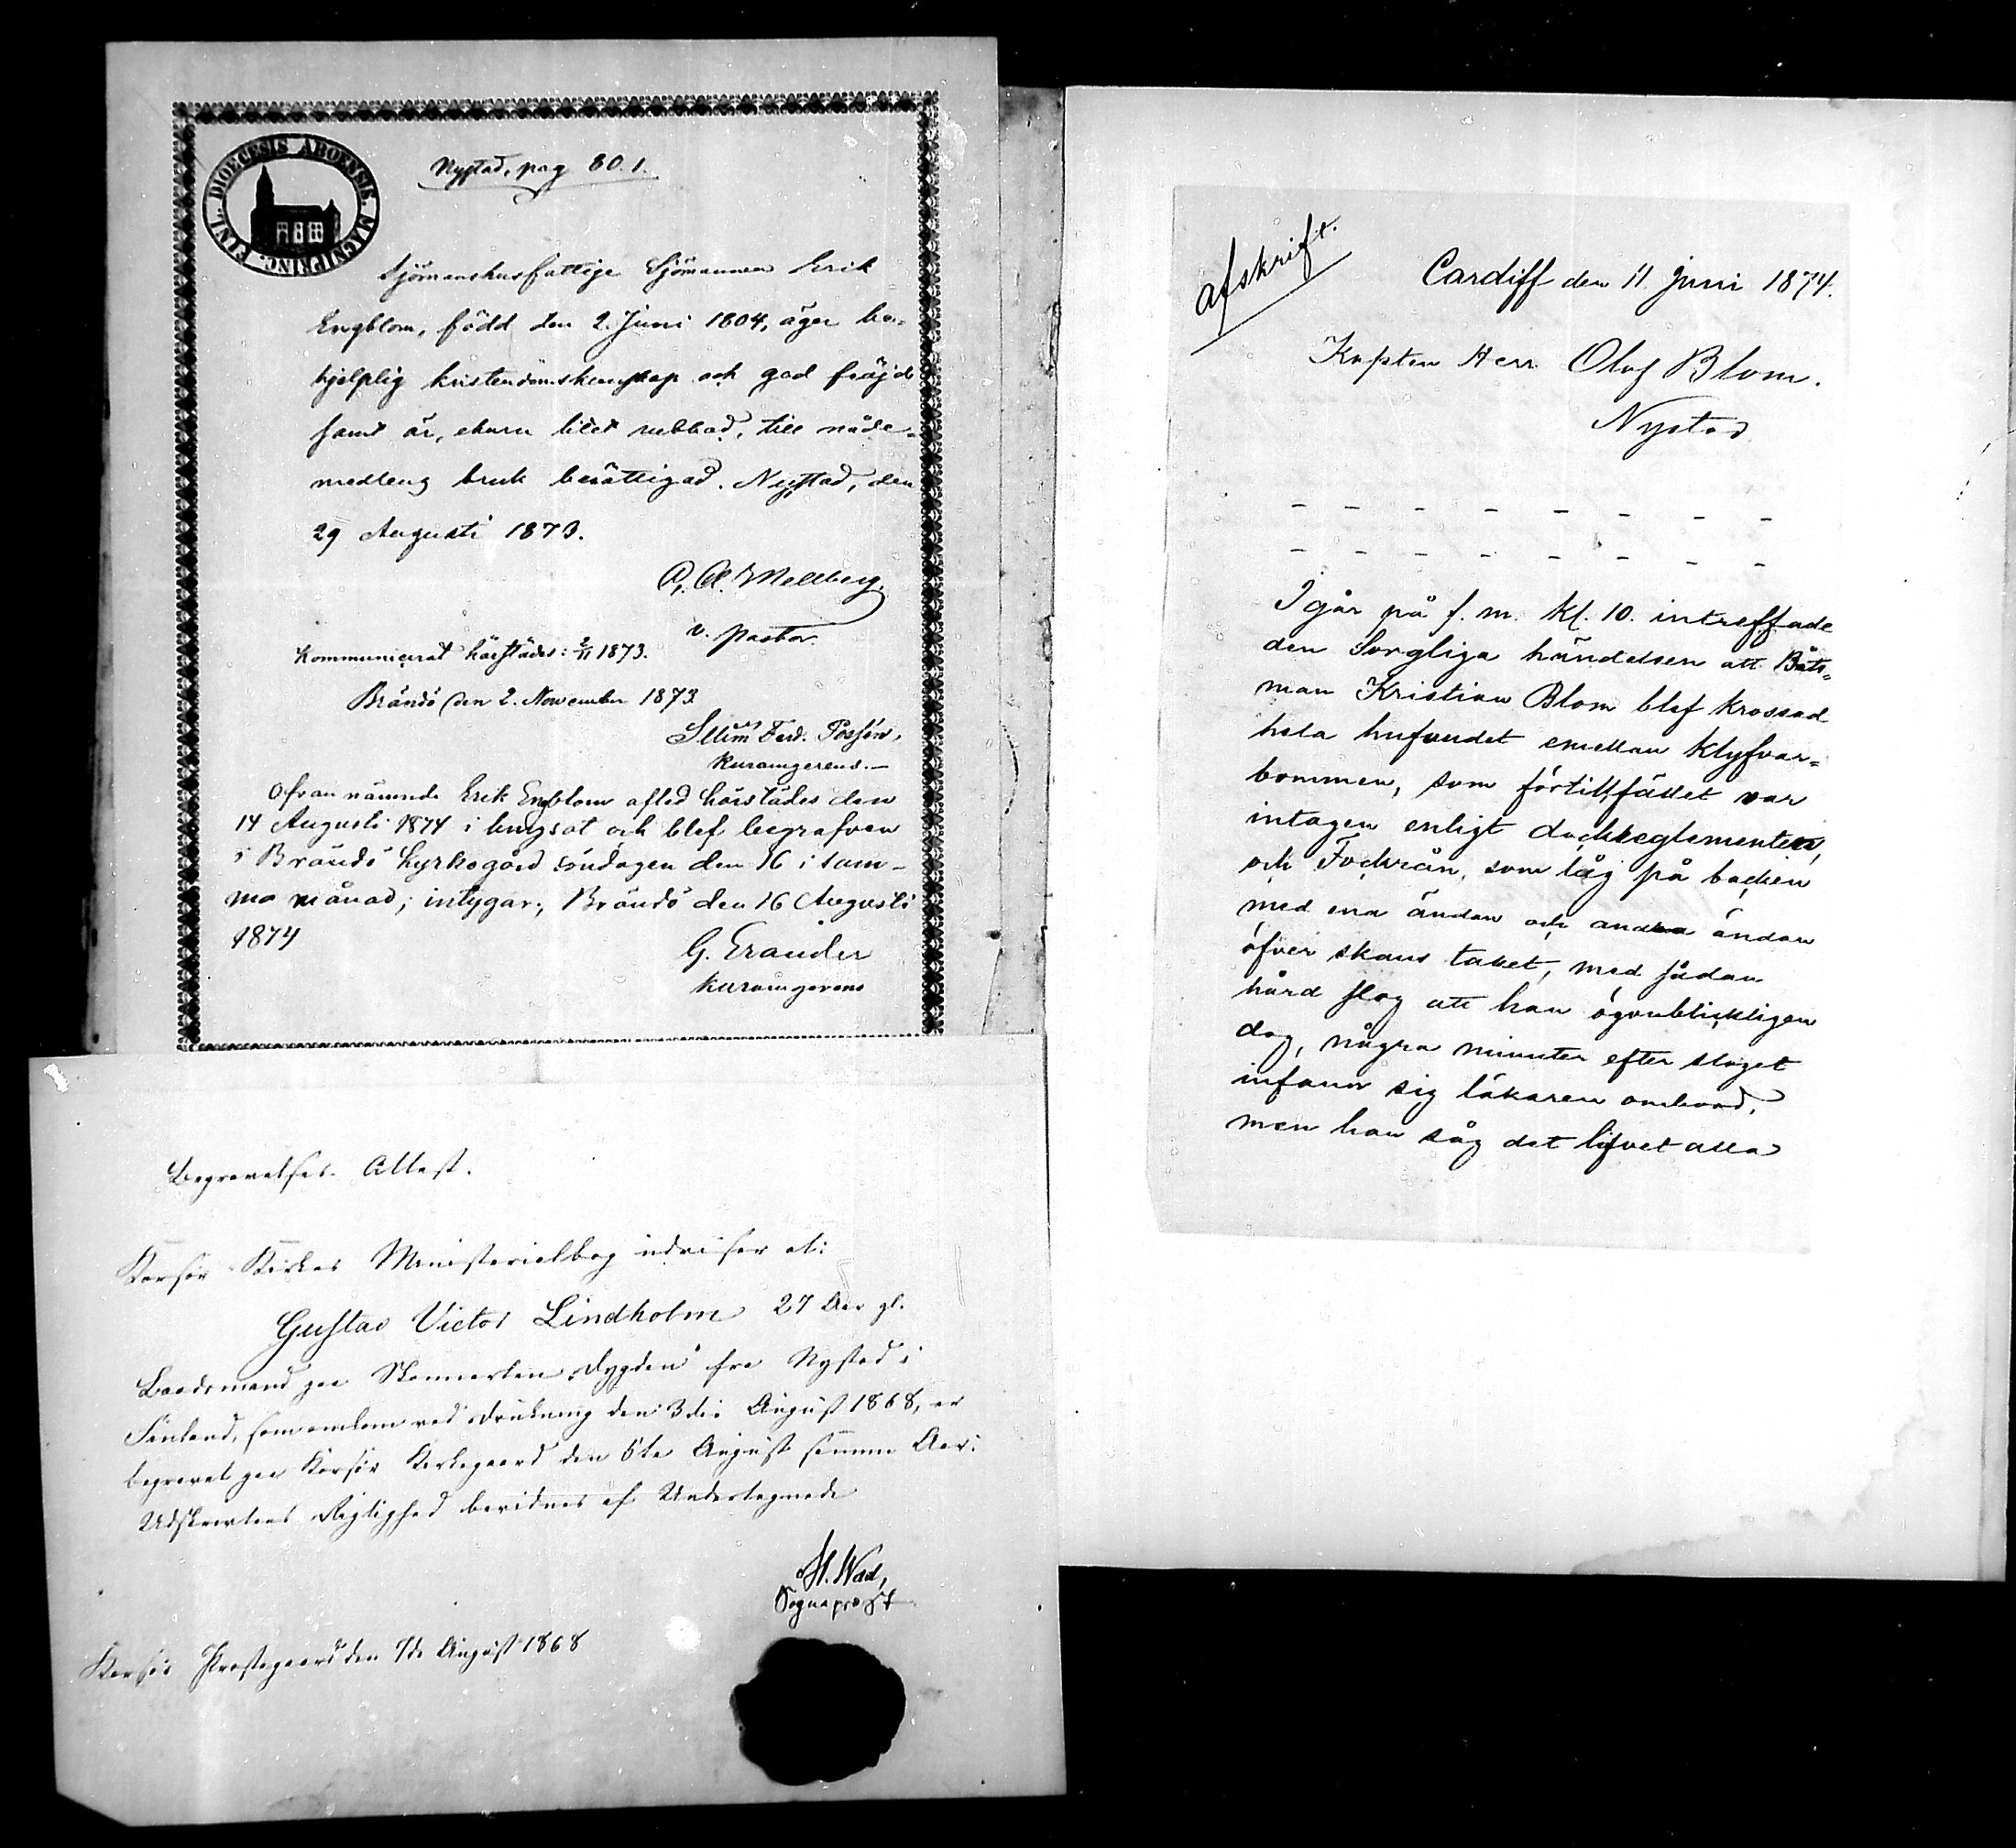 FINL. DIOECESIS ABOENSIS. MAGNI PRINC.
Nystad, pag 80.1.
Sjömanshusfattige Sjömannen Erik
Engblom, född den 2. Juni 1804, äger be-
hjelplig kristendomskunskap och god fräjd
samt är, ehuru litet rubbad, till nåde-
medlens bruk berättigad. Nystad, den
29 Augusti 1873.
A. Mellberg
v. pastor.
Kommunicerat härstädes: 2/11 1873.
Brändö den 2. November 1873
Ferd.
Kuramgerens.—
Ofvannämnde Erik Engblom afled härstädes den
14 Augusti 1874 i lungsot och blef begrafven
i Brändö kyrkogård söndagen den 16 i sam-
ma månad; intygar; Brändö den 16 Augusti
1874
G. Erander
Kuramgerens
Begravelses Attest.
Korsør Kirkes Ministerialbog udviser at:
Gustav Victor Lindholm 27 Aar gl.
Baadsmand paa Skonnerten "Dygden" fra Nystad i
Finland, som omkom ved Drukning den 3die August 1868, er
begravet paa Korsør Kirkegaard den 6te August samme Aar.
Udskrivtens Rigtighed bevidnes af Undertegnede
H. Wad,
Sognepræst
Korsør Præstegaard den 7de August 1868
Afskrift.
Cardiff den 11 Juni 1874.
Kapten Herr Olof Blom.
Nystad
- - - - - - - -
- - - - - - - -
I går på f. m. kl. 10. intreffade
den Sorgliga händelsen att Båts-
man Kristian Blom blef krossad
hela hufvudet emellan Klyfvar-
bommen, som för tillfället var
intagen enligt dockreglementen,
och Fockrån, som låg på backen
med ena ändan och andra ändan
öfver skans taket, med sådan
hård slag att han ögonblickligen
dog, några minuter efter slaget
infann sig läkaren ombord,
men han såg det lifvet alla